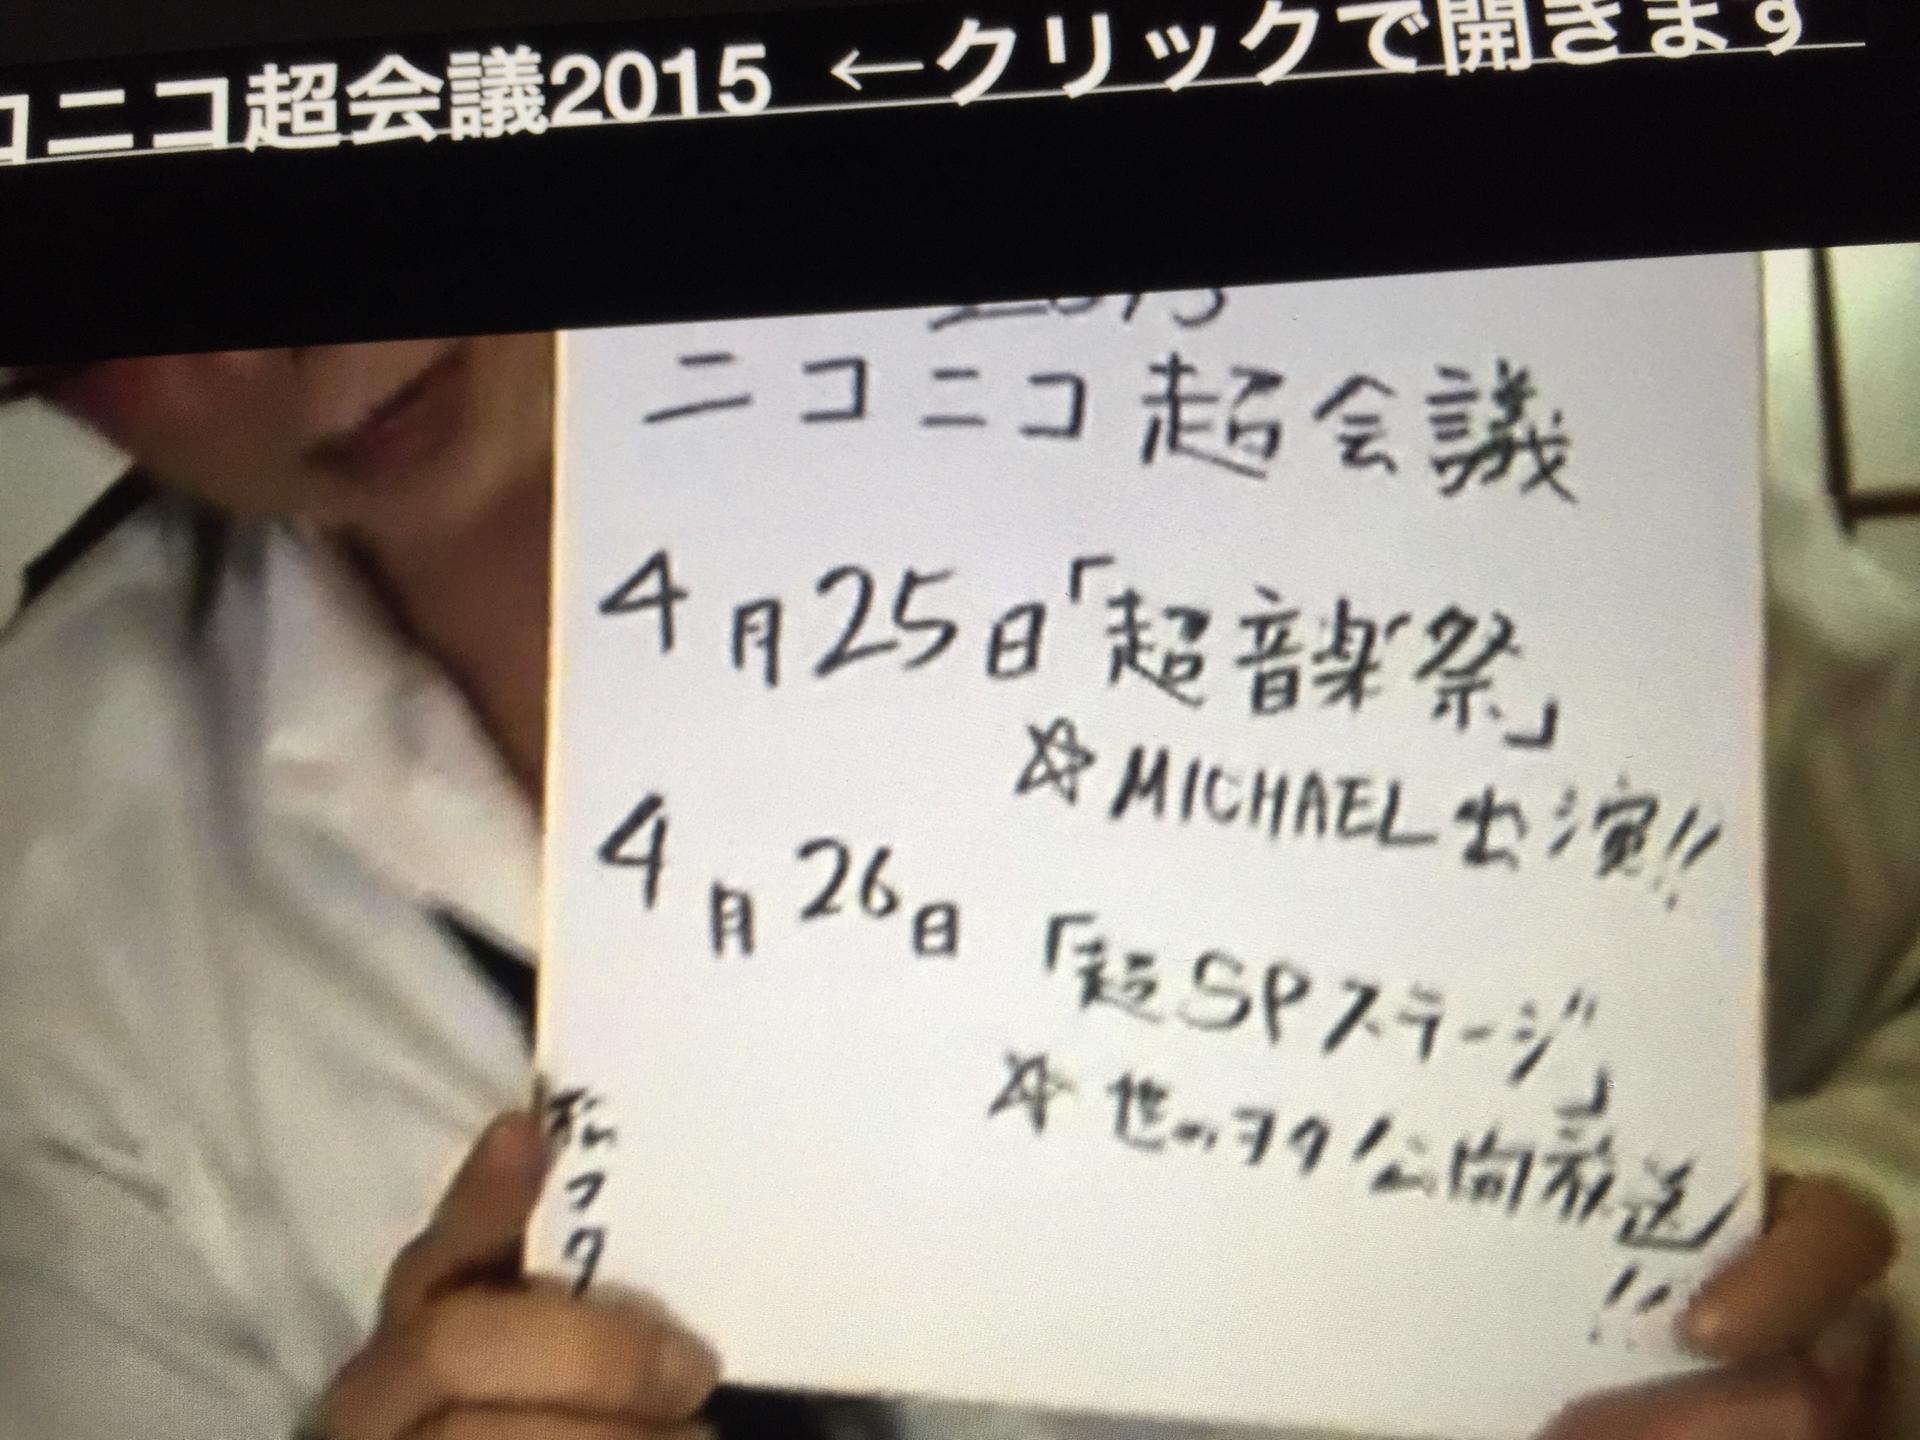 コニコ超会議2015 ←クリックで開きます
2015
ニコニコ超会議
4月25日「超音楽祭」
☆MICHAEL出演!!
4月26日「超SPステージ」
☆世のヲタノ公開放送
!!